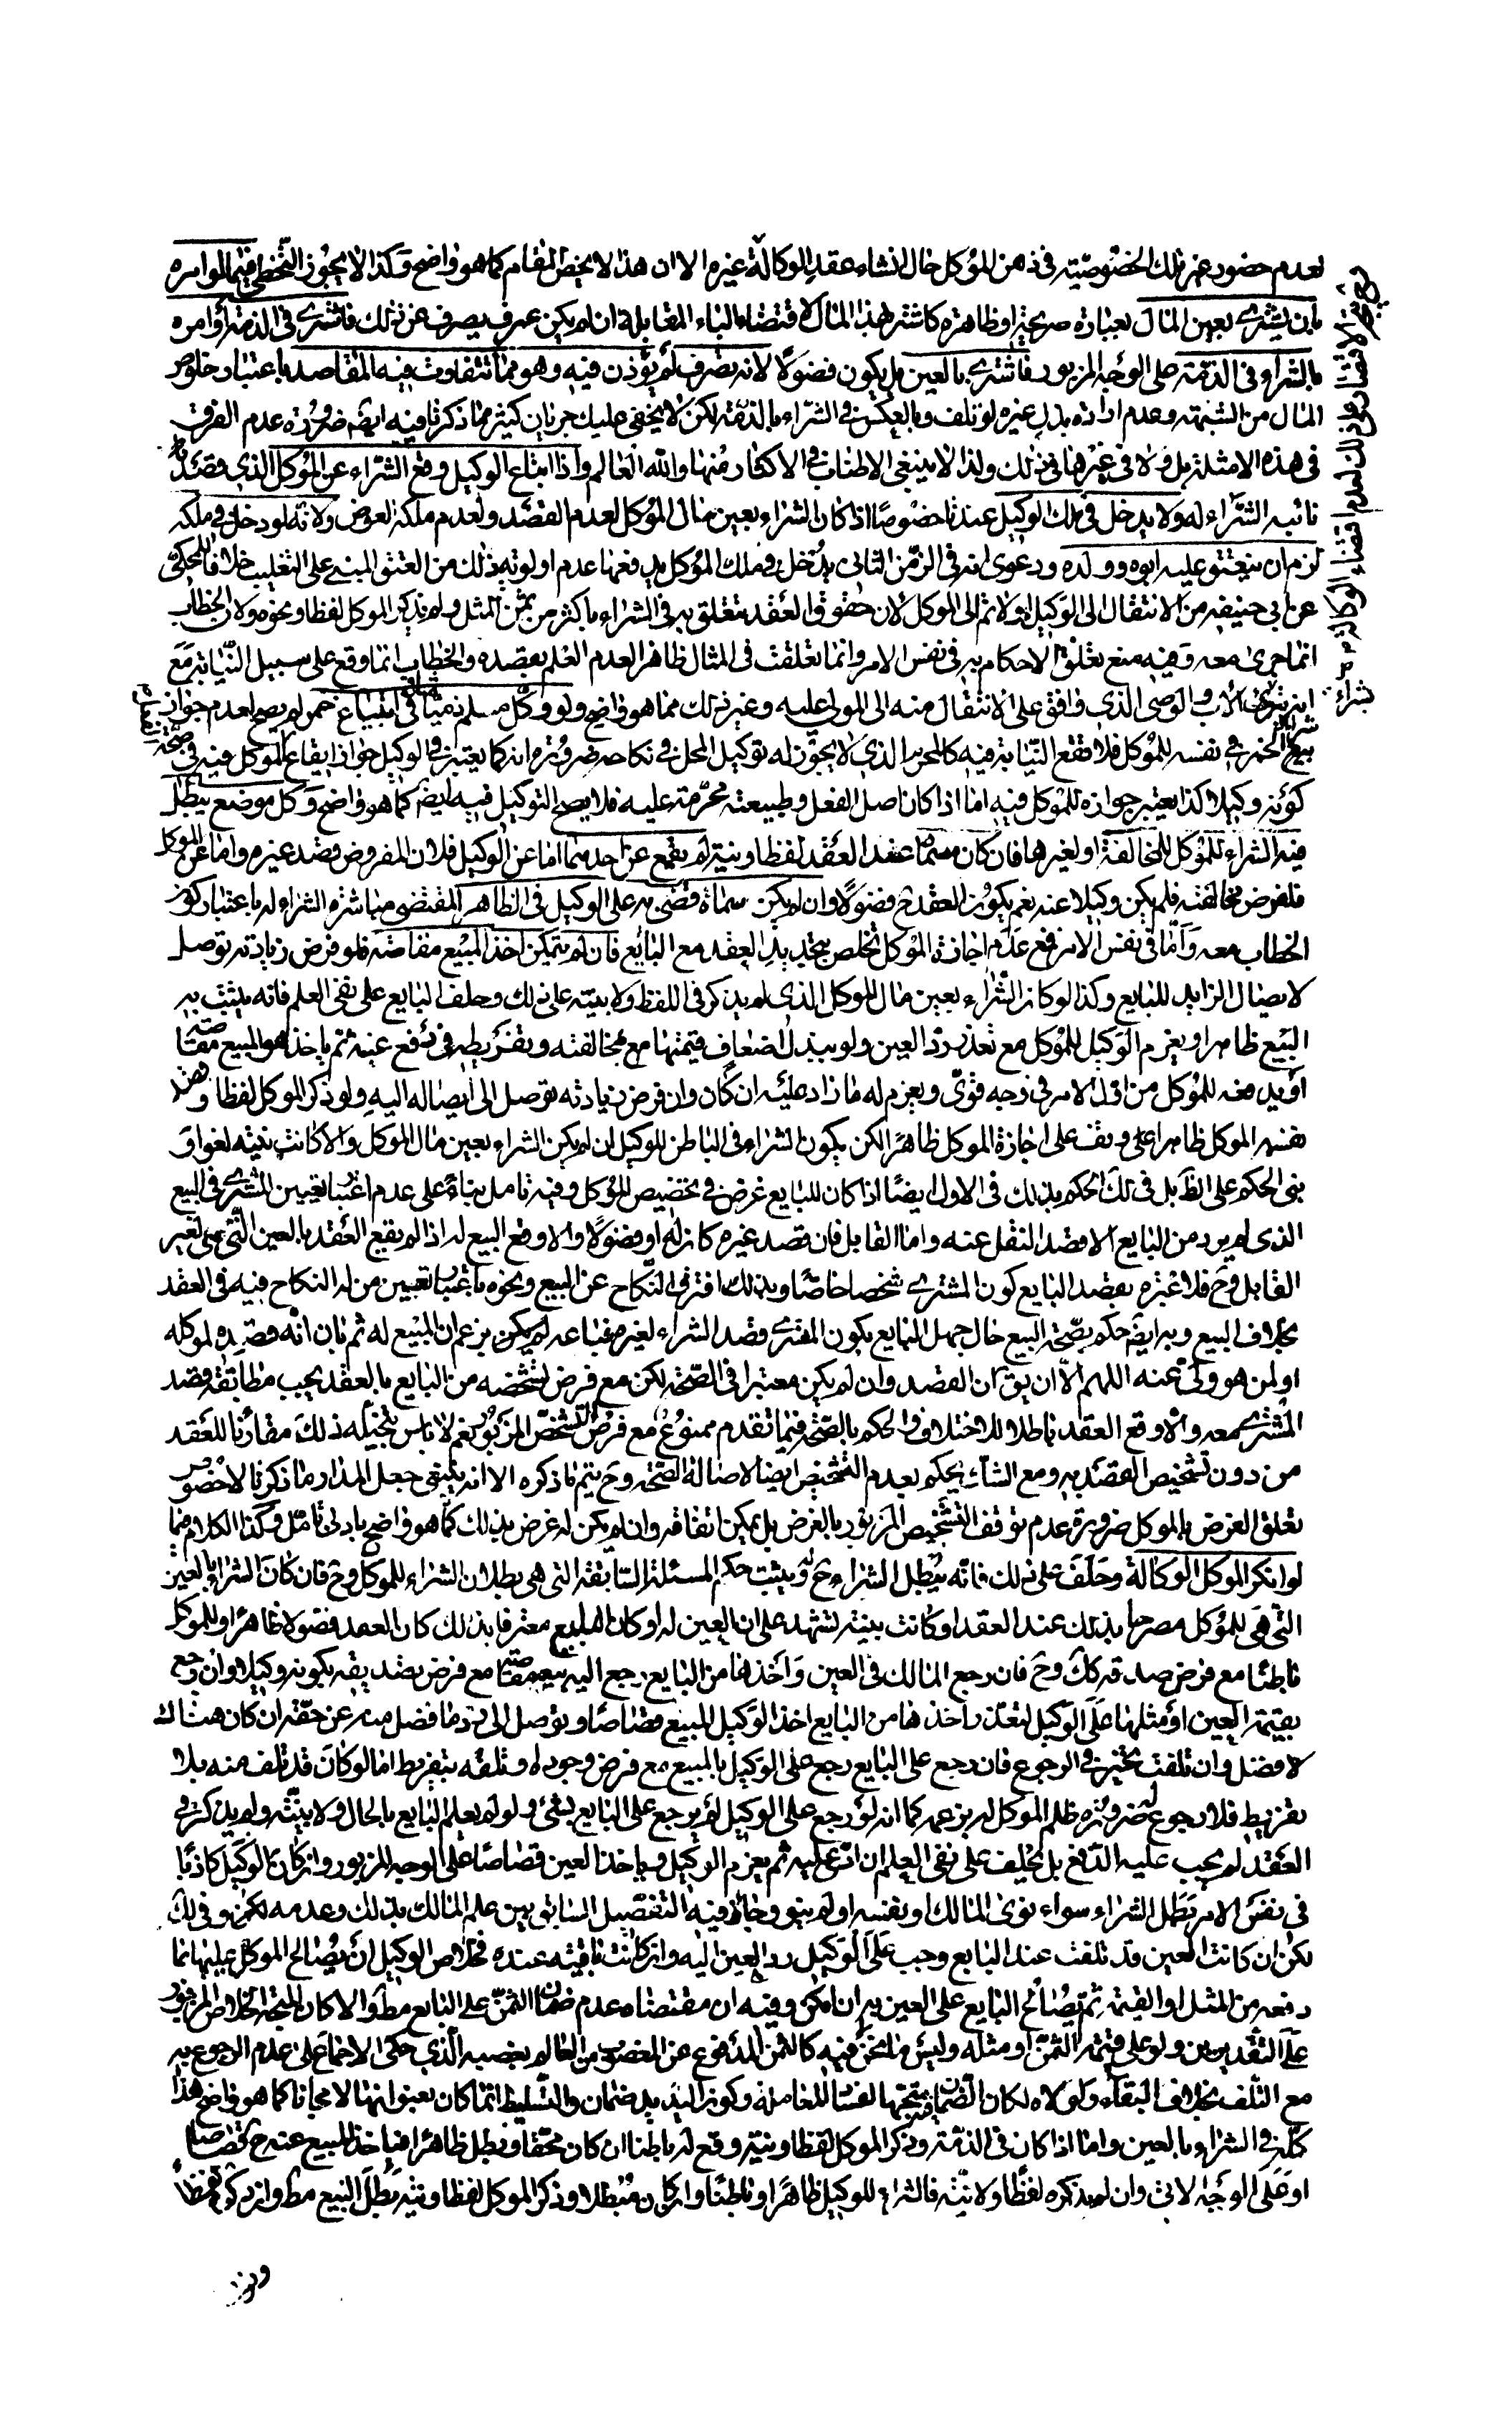 لعدم حضور غير تلك الخصوصيّة فى ذهن الموكل حال انشاء عقد الوكالة غيره الا ان هذا لا يخص المقام كما هو واضح وكذا لا يجوز التخطى فيما لو امره
بان يشترى بعين المال بعبارة صريحة او ظاهرة كاشتر بهذا المال لاقتضاء الباء المقابلة ان لم يكن عرف يصرف عن ذلك فاشترى فى الذمة أو امره
بالشراء فى الذمة على الوجه المزبور فاشترى بالعين بل يكون فضولًا لانه تصرف لم يؤذن فيه وهو مما تتفاوت فيه المقاصد باعتبار خلوص
المال من الشبهة وعدم ارادة بدل غيره لو تلف وبالعكس فى الشراء بالذمة لكن لا يخفى عليك جريان كثير مما ذكرنا فيه ايضم ضرورة عدم الفرق
فى هذه الامثلة بل ولا فى غيرها فى ذلك ولذا لا ينبغى الاطناب فى الاكثار منها والله العالم واذا ابتاع الوكيل وقع الشراء عن الموكل الذى قصد
نائبه الشراء له ولا يدخل فى ملك الوكيل عندنا خصوصًا اذا كان الشراء بعين مال الموكل لعدم القصد ولعدم ملكه العوض ولانه لو دخل فى ملكه
لزم ان ينعتق عليه ابوه وولده ودعوى انه فى الزمن الثانى يدخل فى ملك الموكل يدفعها عدم اولوية ذلك من العتق المبنى على التغليب خلافا للمحكى
عن ابى حنيفه من الانتقال الى الوكيل اولا ثم الى الموكل لان حقوق العقد متعلق به فى الشراء باكثر من ثمن المثل ولم يذكر الموكل لفظا ونحوه ولان الخطاب
انما جرى معه وفيه منع تعلق الاحكام به فى نفس الامر وانما تعلقت فى المثال ظاهرا لعدم العلم بقصده والخطاب انما وقع على سبيل النيابة مع
انه كشرى الاب والوصى الذى وافق على الانتقال منه الى المولى عليه وغير ذلك مما هو واضح ولو وكل مسلم ذميا فى ابتياع خمر لم يصح لعدم جواز
بيع الخمر فى نفسه للموكل فلا تقع النيابة فيه كالمحرم الذى لا يجوز له توكيل المحل فى نكاحه ضرورة انه كما يعتبر فى الوكيل جواز ايقاع الموكل فيه فى صحة
كونه وكيلا كذا يعتبر جوازه للموكل فيه اما اذا كان اصل الفعل وطبيعته محرمة عليه فلا يصح التوكيل فيه ايضم كما هو واضح وكل موضع يبطل
فيه الشراء للموكل للمخالفة او لغيرها فان كان سماه عند العقد لفظا ونية لم يقع عن احدهما اما عن الوكيل فلان المفروض قصد غيره واما عن الموكل
فلفرض مخالفته فلم يكن وكيلا عنه نعم يكون العقد ح فضولًا وان لم يكن سماه قضى به على الوكيل فى الظاهر المقتضى مباشرة الشراء له باعتبار كون
الخطاب معه وامّا فى نفس الامر فمع عدم اجازة الموكل تخلص بتجديد العقد مع البايع فان لم يتمكن اخذ المبيع مقاصّه فلو فرض زيادته توصل
لايصال الزايد للبايع وكذا لو كان الشراء بعين مال الموكل الذى لم يذكر فى اللفظ ولا بينة على ذلك وحلف البايع على نفى العلم فانه يثبت به
البيع ظاهرا ويغرم الوكيل للموكل مع تعذر رد العين ولو ببذل اضعاف قيمتها مع مخالفته وتفريطه فى دفع عينه ثم ياخذ هو المبيع مقاصّة
او يدفعه للموكل من اول الامر فى وجه قوىّ ويغرم له ما زاد عليه ان كان وان فرض زيادته توصل الى ايصاله اليه ولو ذكر الموكل لفظا وقصد
نفسه الموكل ظاهرا على وقف على اجازة الموكل ظاهرًا لكن يكون الشراء فى الباطن للوكيل ان لم يكن الشراء بعين مال الموكل والا كانت نيته لغوا و
بنى الحكم على الظ بل فى لك الحكم بذلك فى الاول ايضًا اذا كان للبايع غرض فى تخصيص الموكل وفيه تامل بناءً على عدم اعتبار تعيين المشترى فى البيع
الذى لم يرد من البايع الا قصد النقل عنه واما القابل فان قصد غيره كان له او فضولًا والا وقع البيع له اذا لم يقع العقد بالعين التى هى لغير
القابل وح فلا عبرة بقصد البايع كون المشترى شخصا خاصًا وبذلك افترق النكاح عن البيع ونحوه باعتبار تعيين من له النكاح فيه فى العقد
بخلاف البيع وبه ايضم حكم بصّحة البيع حال جهل البايع بكون المشترى قصد الشراء لغيره فباعه له بزعم ان المبيع له ثم بان انه قصده لموكله
او لمن هو ولى عنه اللهم الّا ان يق ان القصد وان لم يكن معتبرا فى الصّحة لكن مع فرض تشخصه من البايع بالعقد يجب مطابقة قصد
المشترى معه والا وقع العقد باطلا للاختلاف والحكم بالصحّة فيما تقدم ممنوع مع فرض التشخّص المزبور نعم لا باس بتخيله ذلك مقارنًا للعقد
من دون تشخيص العقد به ومع الشك يحكم بعدم التشخيص ايضا لاصالة الصّحة وح يتم ما ذكره الا انه ينبغى جعل المدار ما ذكرنا لا خصوص
تعلق الغرض بالموكل ضرورة عدم توقف التشخيص المزبور بالغرض بل يمكن اتفاقه وان لم يكن له غرض بذلك كما هو واضح بادنى تامّل وكذا الكلام فيما
لو انكر الموكل الوكالة وحلف على ذلك فانّه يبطل الشراء ح له ويثبت حكم المسئلة السّابقة التى هى بطلان الشراء للموكل وح فان كان الشراء بالعين
التى هى للموكل مصرحا بذلك عند العقد او كانت بينة تشهد على ان العين له او كان البايع معترفا بذلك كان العقد فضولا ظاهرًا وللموكل
باطنًا مع فرض صدقه كك وح فان رجع المالك فى العين واخذها من البايع رجع اليه بمبيعه مقاصّة مع فرض تصديقه بكونه وكيلا وان رجع
بقيمة العين او مثلها على الوكيل لتعذر اخذها من البايع اخذ الوكيل المبيع قصاصًا وتوصل الى رد ما فضل منه عن حقّه ان كان هناك
لا فضل وان تلفت تخير فى الرجوع فان رجع على البايع رجع على الوكيل بالمبيع مع فرض وجوده وتلفه بتفريط اما لو كان قد تلف منه بلا
تفريط فلا رجوع له ضرورة ظلم الموكل له بزعمه كما انه لو رجع على الوكيل لم يرجع على البايع بشئ ولو لم يعلم البايع بالحال ولا بينة ولم يذكر فى
العقد لم يجب عليه الدّفع بل يحلف على نفى العلم ان ادّعى عليه ثم يغرم الوكيل وياخذ العين قصاصًا على الوجه المزبور وان كان الوكيل كاذبًا
فى نفس الامر بطل الشراء سواء نوى المالك او نفسه او لم ينو وجاء فيه التفصيل السابق بين علم المالك بذلك وعدمه لكن فى لك
لكن ان كانت العين قد تلفت عند البايع وجب على الوكيل رد العين اليه وان كانت باقية عنده فخلاص الوكيل ان يصالح الموكل عليها بما
دفعه من المثل او القيمة ثم يصالح البايع على العين به ان امكن وفيه ان مقتضاه عدم ضمان الثمن على البايع مطو الا كان المتجه الخلاص المزبور
على التقديرين ولو على قيمة الثمن او مثله وليس ما نحن فيه كالثمن المدفوع عن المغصوب من العالم بغصبه الذى حكى الاجماع على عدم الرجوع به
مع التلف بخلاف البقاء ولولاه لكان الضمان فيه متجها لفساد المعاملة وكون اليد يد ضمان والتسليط انما كان بعنوانها لا مجانا كما هو واضح هذا
كلّه فى الشراء بالعين واما اذا كان فى الذمة وذكر الموكل لفظا ونية وقع له باطنا ان كان محقا وبطل ظاهرا فياخذ المبيع عنده ح قصاصا
او على الوجه الاتى وان لم يذكره لفظًا ولا نيّة فالشراء للوكيل ظاهرًا وباطنًا وان كان مبطلا وذكر الموكل لفظا ونية بطل البيع مط وان ذكره لفظًا